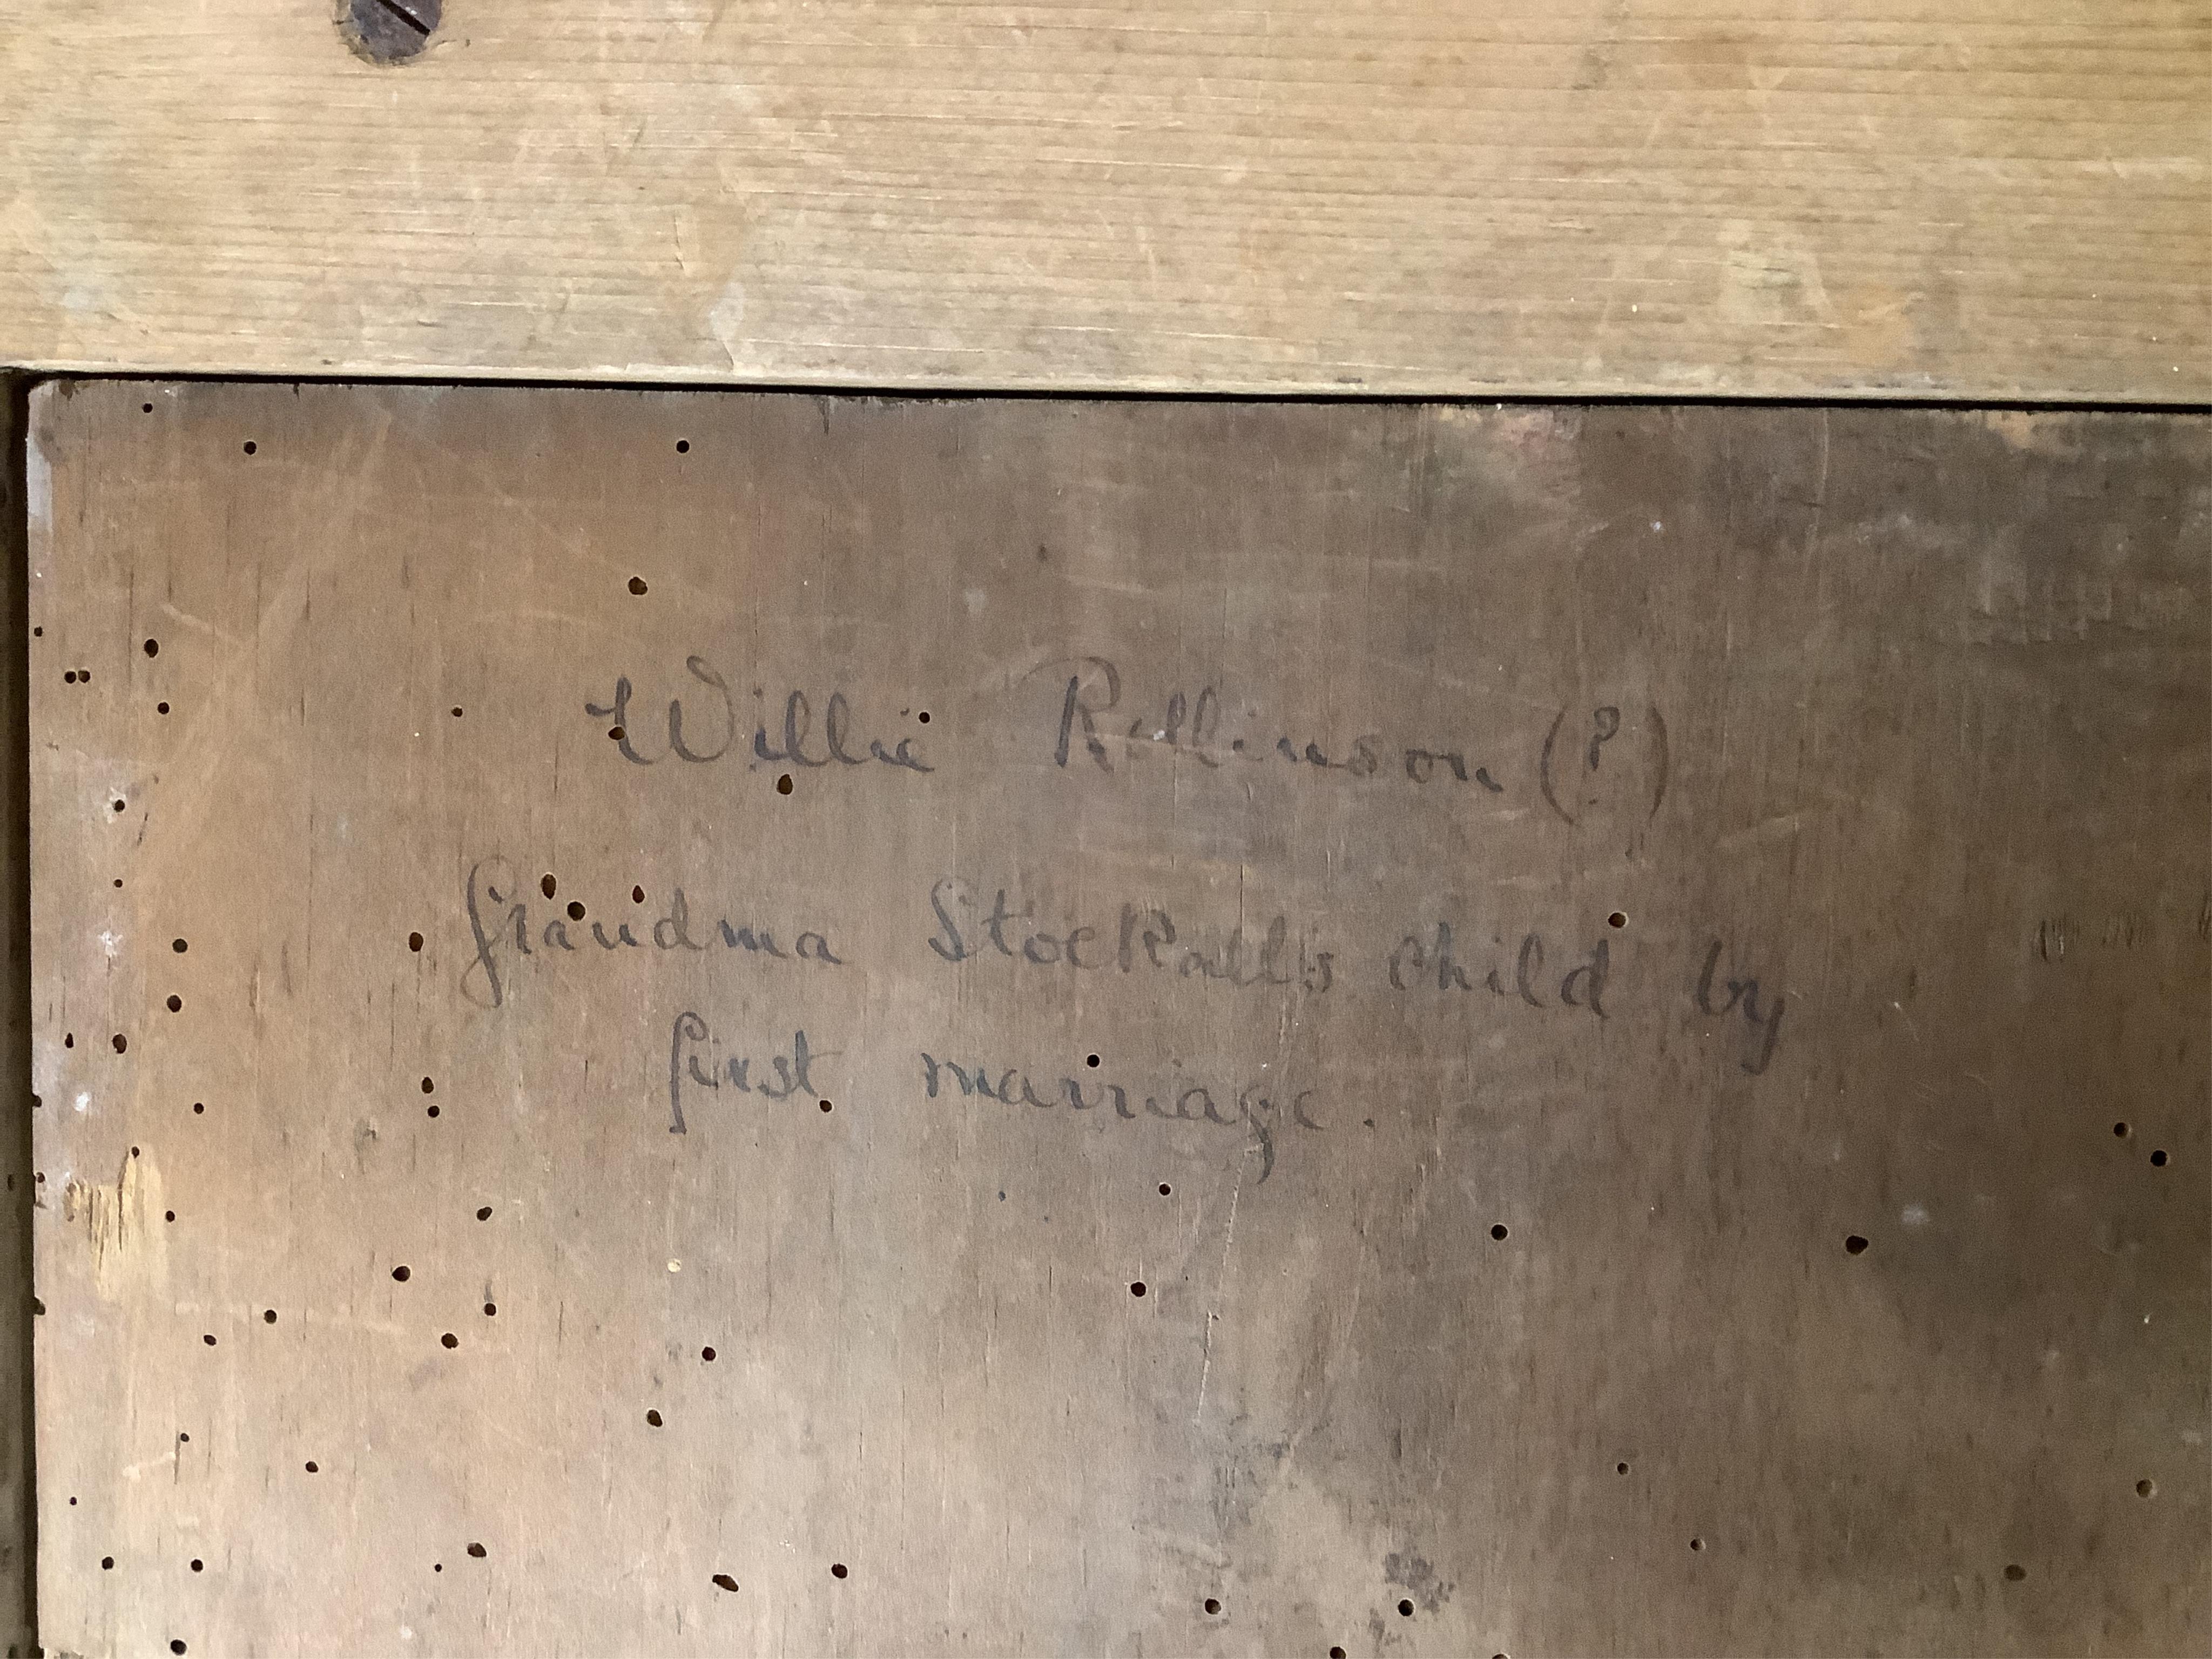 Willie Rollinson (?)
Grandma Stockall's child by
first marriage.